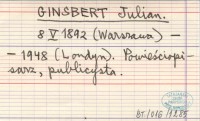 GINSBERT Julian.
8 V 1892 (Warszawa) –
– 1948 (Londyn). Powieściopi-
sarz, publicysta.
BT/016/1285